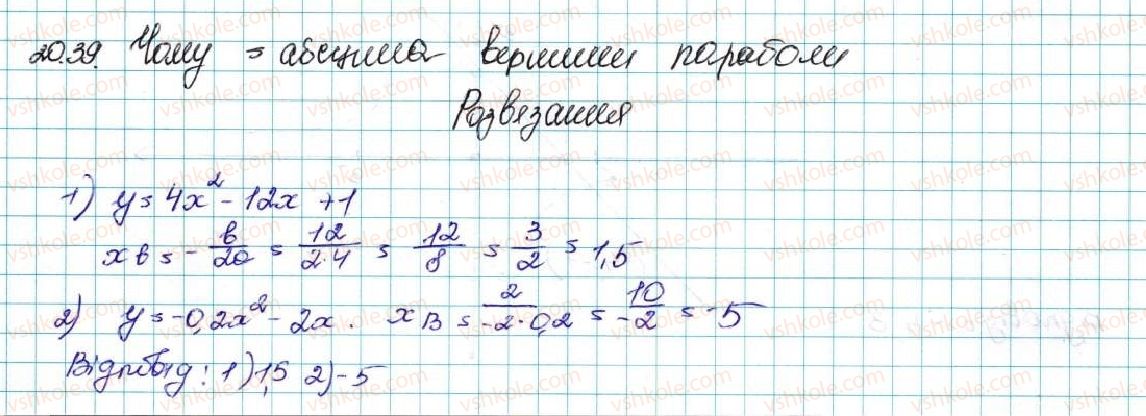 20.39. Чому = абсциса вершини параболи
Розвязання
1) y = 4x² - 12x + 1
xв = -в/2a = 12/2·4 = 12/8 = 3/2 = 1,5
2) y = -0,2x² - 2x. xв = 2/-2·0,2 = 10/-2 = -5
Відповід: 1) 1,5 2) -5